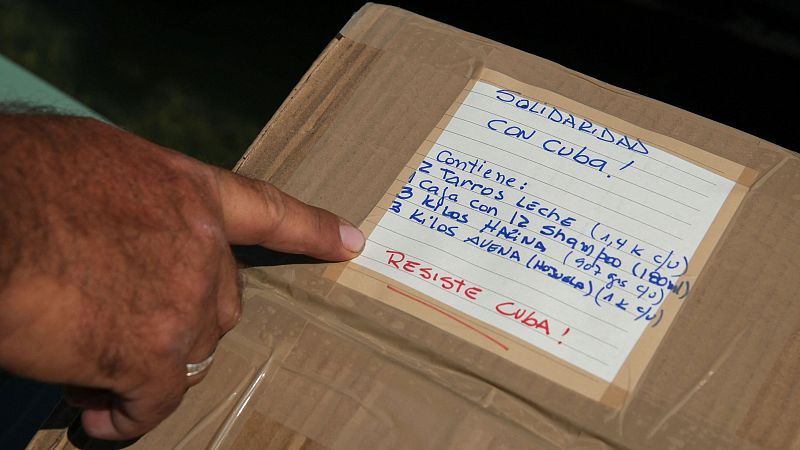 SOLIDARIDAD
CON CUBA!
Contiene:
12 TARROS LECHE (1,4 K c/u)
1 CAJA CON 12 SHAMPOO (180ml)
3 KILOS HARINA (907 grs c/u)
3 KILOS AVENA (HOJUELA) (1 K c/u)
RESISTE CUBA!